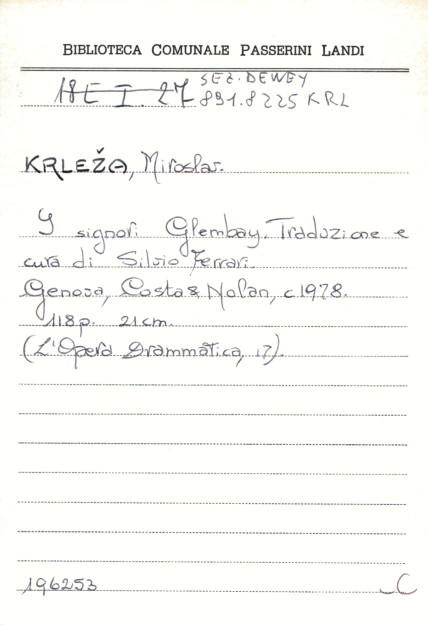 BIBLIOTECA COMUNALE PASSERINI LANDI
18E I. 27 SEZ. DEWEY
891.8225 KRL
KRLEŽA, Miroslav.
I signori Glembay. Traduzione e
cura di Silvio Ferrari.
Genova, Costa & Nolan, c1978.
118p. 21cm.
(L'Opera Drammatica, 17).
196253
C